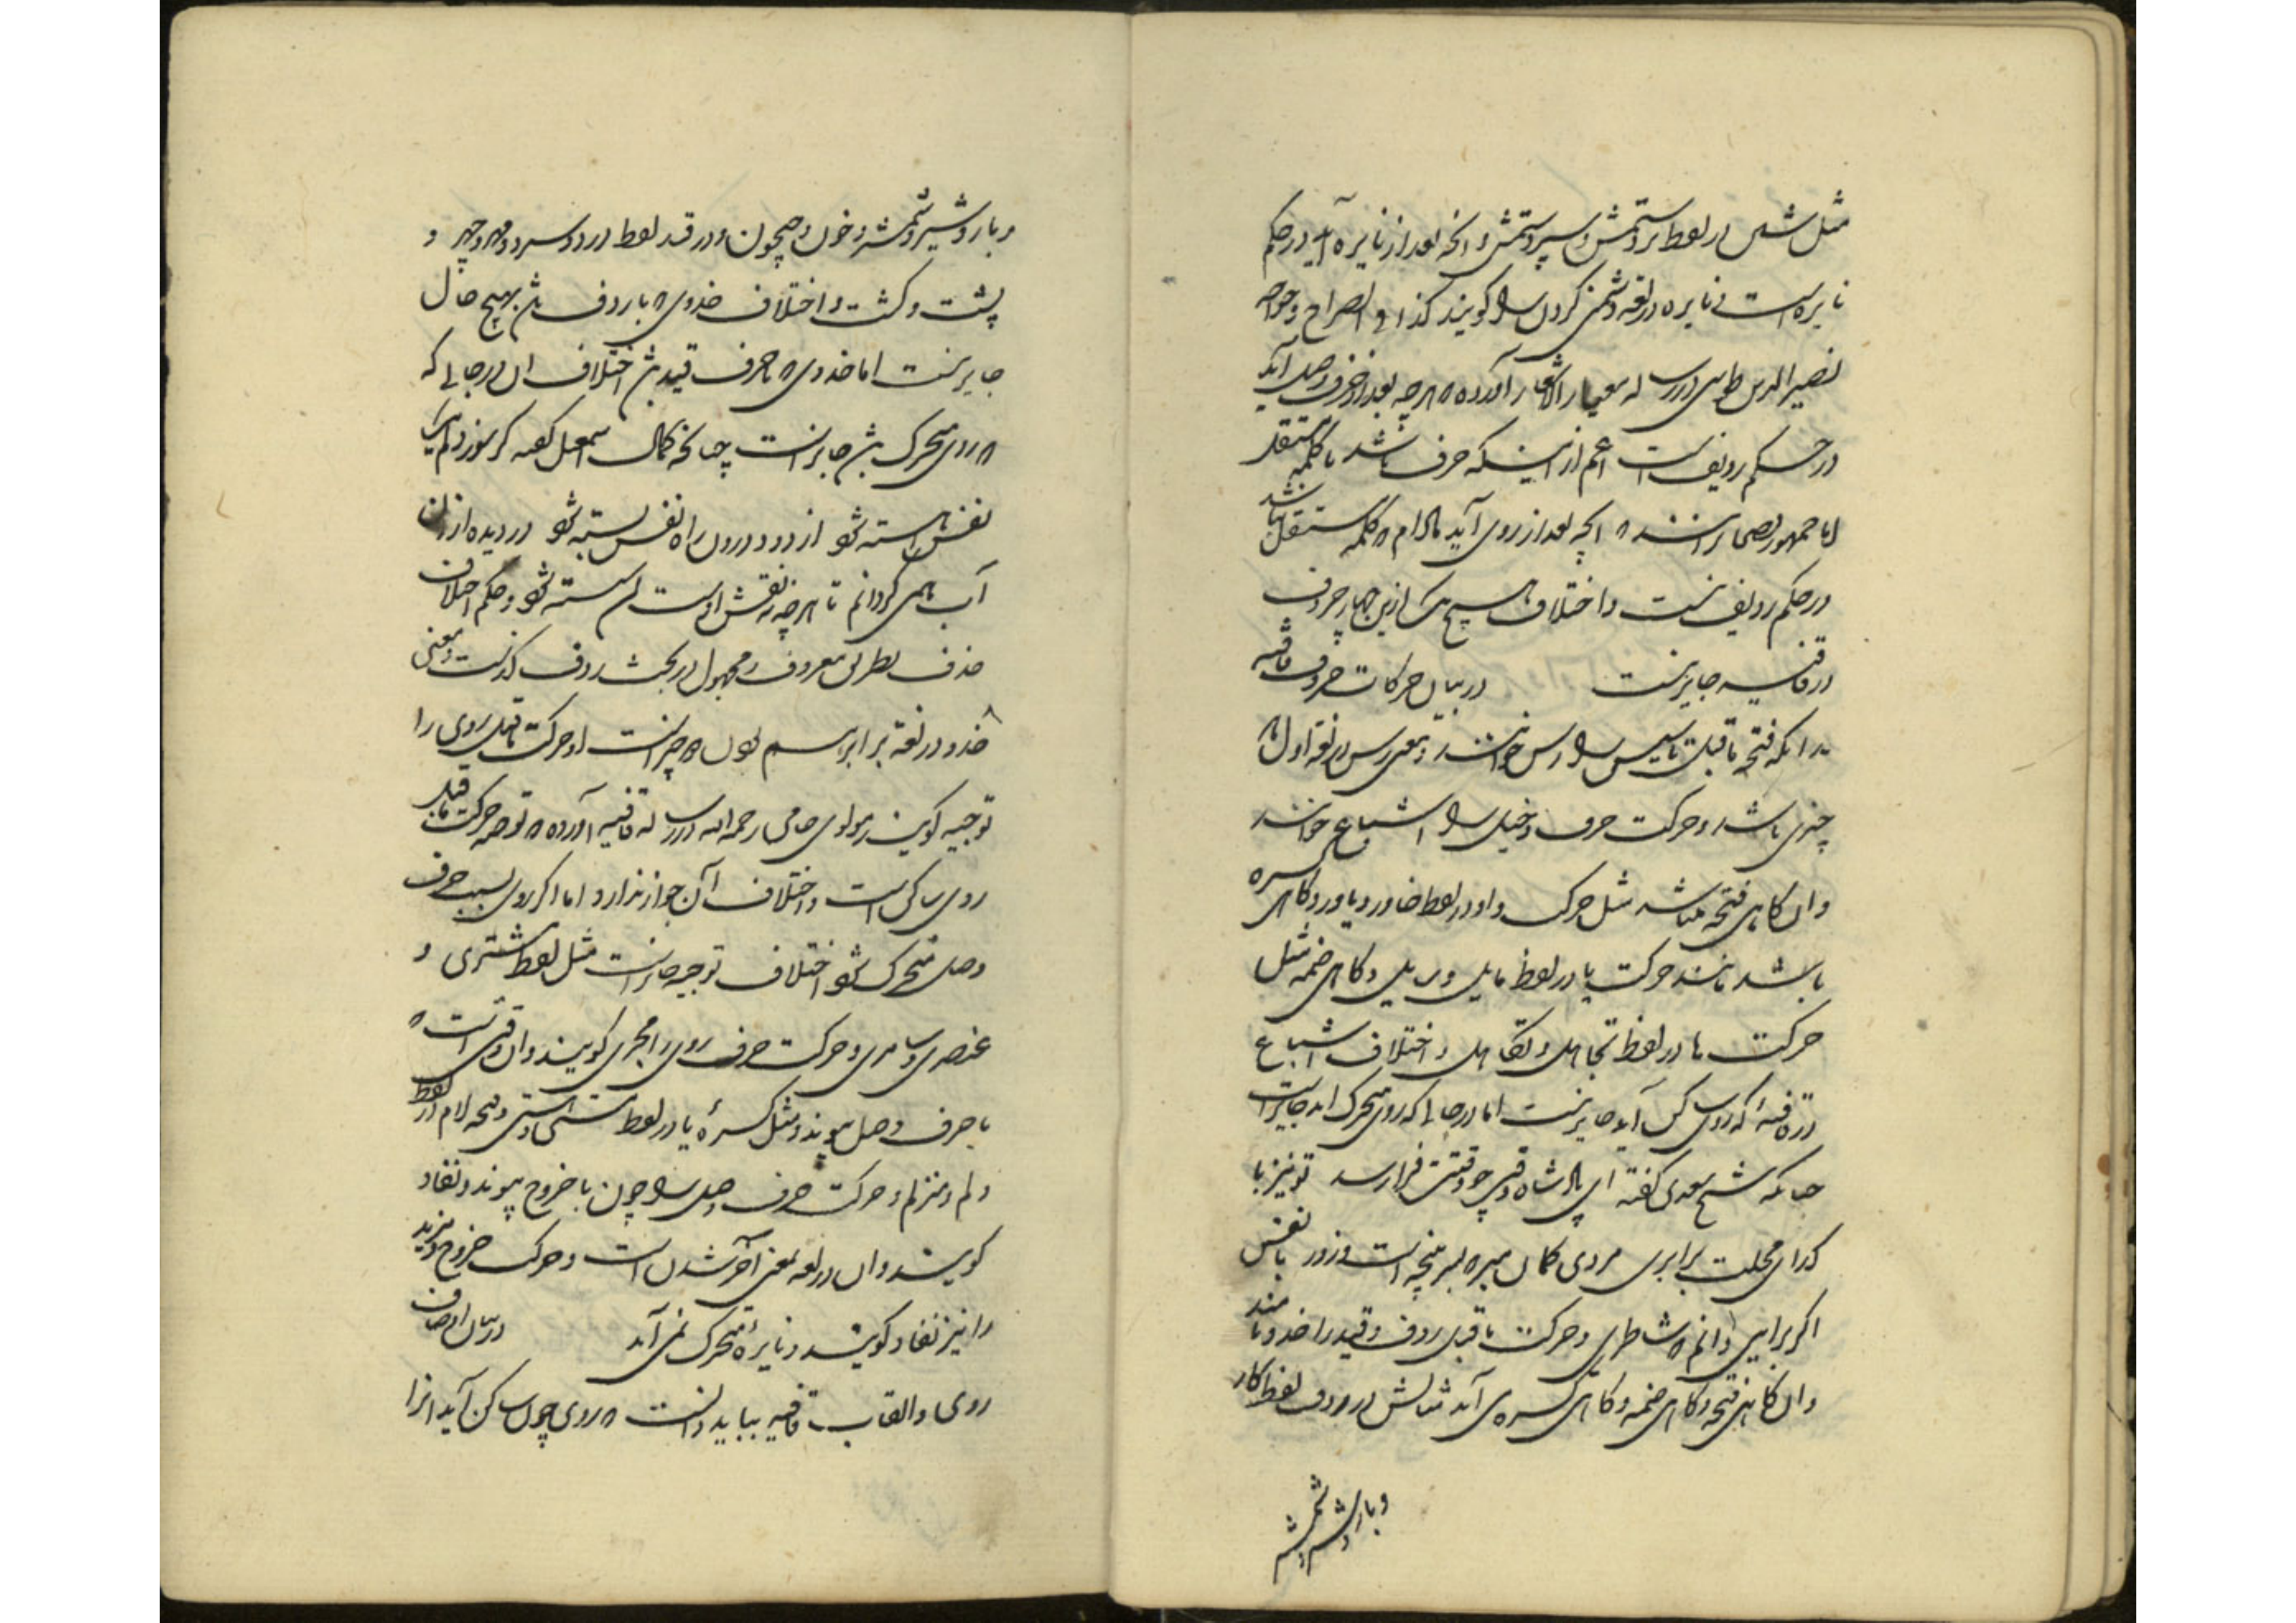 مثل شین در لفظ بردستمش و سپردستمش و انچه بعد از نایره آید در حکم
نایره است نایره در لغه دشمنی کردن را گویند کذا فی الصراح و خواجه
نصیر الدین طوسی در رساله معیار الاشعار آورده که هرچه بعد از حرف وصل آید
در حکم ردیف است اعم از اینکه حرف باشد یا کلمه مستقل
اما جمهور فصحا برانند که انچه بعد از روی آید مادام که کلمه مستقل نباشد
در حکم ردیف نیست و اختلاف هیچ یک ازین چهار حروف
در قافیه جایز نیست در بیان حرکات حروف قافیه
بدانکه فتحه ماقبل تاسیس را رس خوانند و معنی رس در لغه اول
چیزی باشد و حرکت حرف دخیل را اشباع خوانند
وان گاهی فتحه میباشد مثل حرکت واو در لفظ خاور و یاور و گاهی کسره
باشد مانند حرکت یا در لفظ مایل و گاهی ضمه مثل
حرکت ها در لفظ تجاهل و تکاهل و اختلاف اشباع
در قافیه که روی ساکن آید جایز نیست اما در جایی که روی متحرک اید جایز است
چنانکه شیخ سعدی گفته ای پادشاه وقت چو وقتت فرا رسد تو نیز با
گدای محلت برابری مردی گمان مبر که بسر پنجه است و زور با نفس
اگر برایی دانم که شاطری و حرکت ماقبل ردف و قید را حذو نامند
وان گاهی فتحه و گاهی ضمه و گاهی کسره می آید مثالش در ردف لفظ کار
و بار و شیر و شمشیر
و بار و شیر و شمشیر و خون و جیحون و در قید لفظ درد و سرد و مهر و چهر و
پشت و کشت و اختلاف حذوی که با ردف باشد بهیچ حال
جایز نیست اما حذوی که با حرف قید باشد اختلاف ان در جایی که
که روی متحرک باشد جایز است چنانکه کمال اسمعیل گفته گر سوز دلم یک
نفس آهسته شود از دود درون راه نفس بسته شود در دیده ازان
آب همی گردانم تا هرچه نه نقش اوست ان شسته شود و حکم اختلاف
حذف بطریق معروف و مجهول در بحث ردف گذشت و معنی
حذو در لغه برابر هم بودن دو چیز است و حرکت ماقبل روی را
توجیه گویند مولوی جامی رحمه الله در رساله قافیه آورده که توجیه حرکت ماقبل
روی ساکن است و اختلاف آن جواز ندارد اما اگر روی بسبب حرف
وصل متحرک شود اختلاف توجیه جایز است مثل لفظ مشتری و
عنصری و سامری و حرکت حرف روی را مجری گویند وان وقتی است که
با حرف وصل پیوندد مثل کسرهٔ یا در لفظ مستی و هستی و فتحه لام در لفظ
دلم و منزلم و حرکت حرف وصل را چون با خروج پیوندد نفاد
گویند وان در لغه بمعنی آخر شدن است و حرکت خروج و مزید
را نیز نفاد گویند و نایرهٔ متحرک نمی آید در بیان اوصاف
روی و القاب قافیه بباید دانست که روی چون ساکن آید انرا